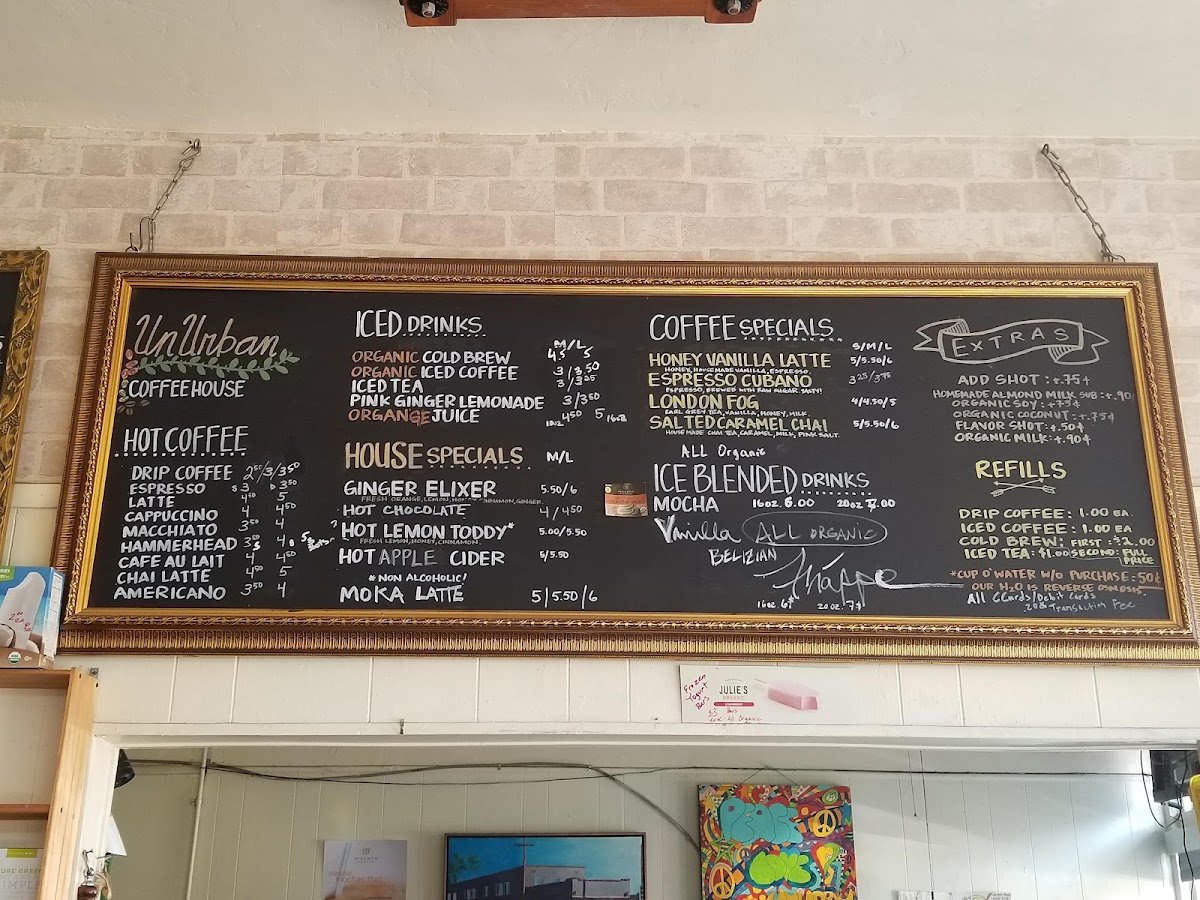 UnUrban
COFFEEHOUSE
HOT COFFEE
DRIP COFFEE 2⁵⁰/3/3⁵⁰
ESPRESSO S 3 D 3⁵⁰
LATTE 4⁵⁰ 5
CAPPUCCINO 4 4⁵⁰
MACCHIATO 3⁵⁰ 4
HAMMERHEAD
CAFE AU LAIT 4 4⁵⁰
CHAI LATTE 4⁵⁰ 5
AMERICANO 3⁵⁰ 4
ICED DRINKS
M/L
ORGANIC COLD BREW 4.5 5
ORGANIC ICED COFFEE 3/3.50
ICED TEA
PINK GINGER LEMONADE 3/350
ORGANGE JUICE 12oz 450 5 16oz
HOUSE SPECIALS M/L
GINGER ELIXER 5.50/6
FRESH ORANGE, LEMON, HONEY, CINNAMON, GINGER
HOT CHOCOLATE 4/450
HOT LEMON TODDY* 5.00/5.50
FRESH LEMON, HONEY, CINNAMON
HOT APPLE CIDER 5/5.50
*NON ALCOHOLIC!
MOKA LATTE 5/5.50/6
COFFEE SPECIALS
S/M/L
HONEY VANILLA LATTE 5/5.50/6
HONEY, HOUSEMADE VANILLA, ESPRESSO
ESPRESSO CUBANO 325/375
ESPRESSO, BREWED WITH RAW SUGAR. TASTY!
LONDON FOG 4/4.50/5
EARL GREY TEA, VANILLA, HONEY, MILK
SALTED CARAMEL CHAI 5/5.50/6
HOUSEMADE CHAI TEA, CARAMEL, MILK, PINK SALT.
ALL Organic
ICE BLENDED DRINKS
MOCHA 16oz 6.00 20oz 7.00
Vanilla ALL ORGANIC
BELIZIAN
Frappe
16oz 6$ 20oz. 7$
EXTRAS
ADD SHOT: +.75¢
HOMEMADE ALMOND MILK SUB: +.90
ORGANIC SOY: +.75¢
ORGANIC COCONUT: +.75¢
FLAVOR SHOT: +.50¢
ORGANIC MILK: +.90¢
REFILLS
DRIP COFFEE: 1.00 EA
ICED COFFEE: 1.00 EA
COLD BREW: FIRST: $2.00
ICED TEA: $1.00 SECOND: FULL PRICE
*CUP O' WATER W/O PURCHASE: 50¢
OUR H₂O IS REVERSE OSMOSIS.
All CCards/Debit Cards
Transaction Fee
Frozen Yogurt Bars
JULIE'S
ORGANIC
$3 Bars
All Organic